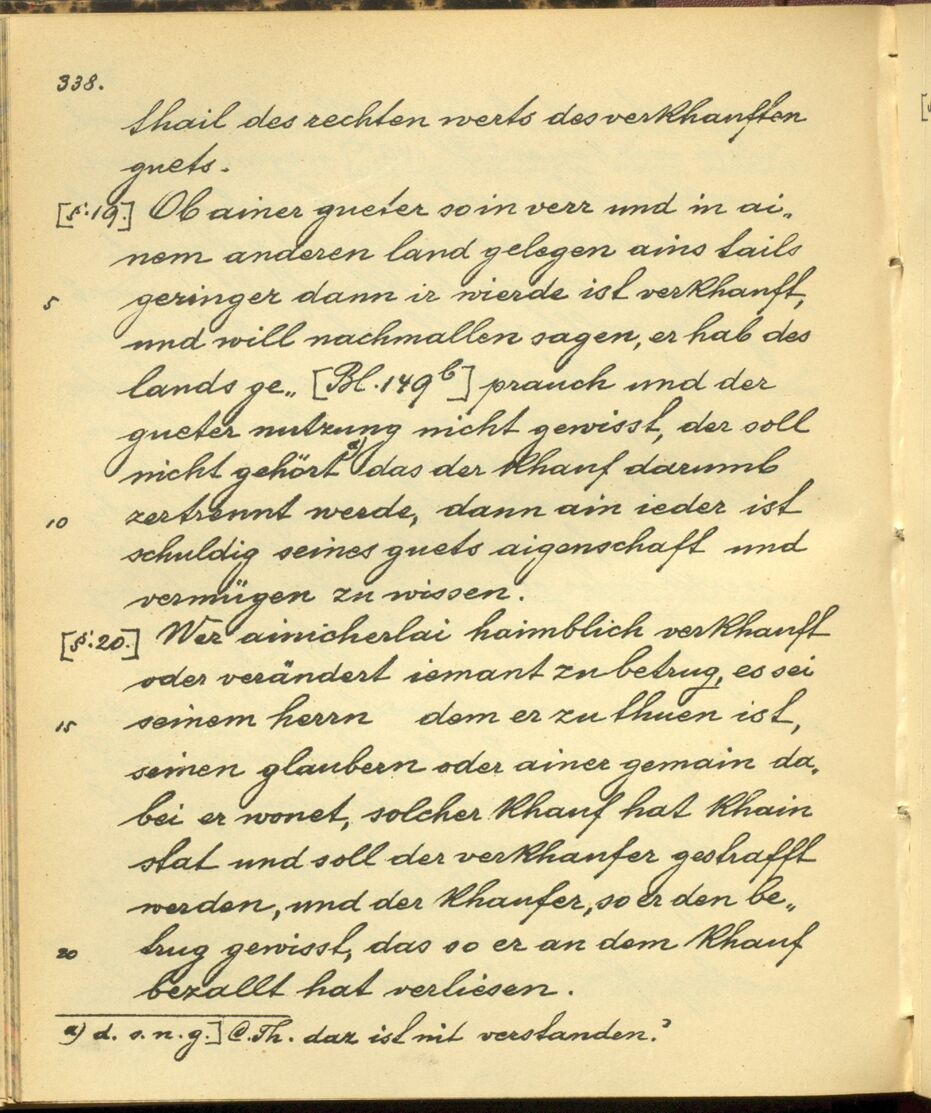 338.
thail des rechten werts des verkhaufften
guets.
[§.19.] Ob ainer gueter so in verr und in ai„
nem anderen land gelegen ains tails
5 geringer dann ir wierde ist verkhauft,
und will nachmallen sagen, er hab des
lands ge„ [Bl. 149b] prauch und der
gueter nutzung nicht gewisst, der soll
nicht gehört a) das der khauf darumb
10 zertrennt werde, dann ain ieder ist
schuldig seines guets aigenschaft und
vermügen zu wissen.
[§.20.] Wer ainicherlai haimblich verkhauft
oder verändert iemant zu betrug, es sei
15 seinem herrn dem er zu thuen ist,
seinen glaubern oder ainer gemain da„
bei er wonet, solcher khauf hat khain
stat und soll der verkhaufer gestrafft
werden, und der khaufer, so er den be„
20 trug gewisst, das so er an dem khauf
bezallt hat verliesen.
a) d. s. n. g.] C. Th. daz ist nit verstanden.